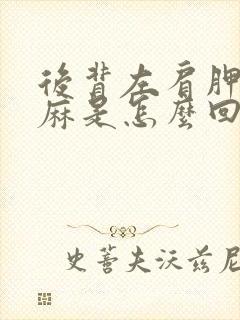 後背左肩胛
麻是怎麼回
史蒂夫沃兹尼